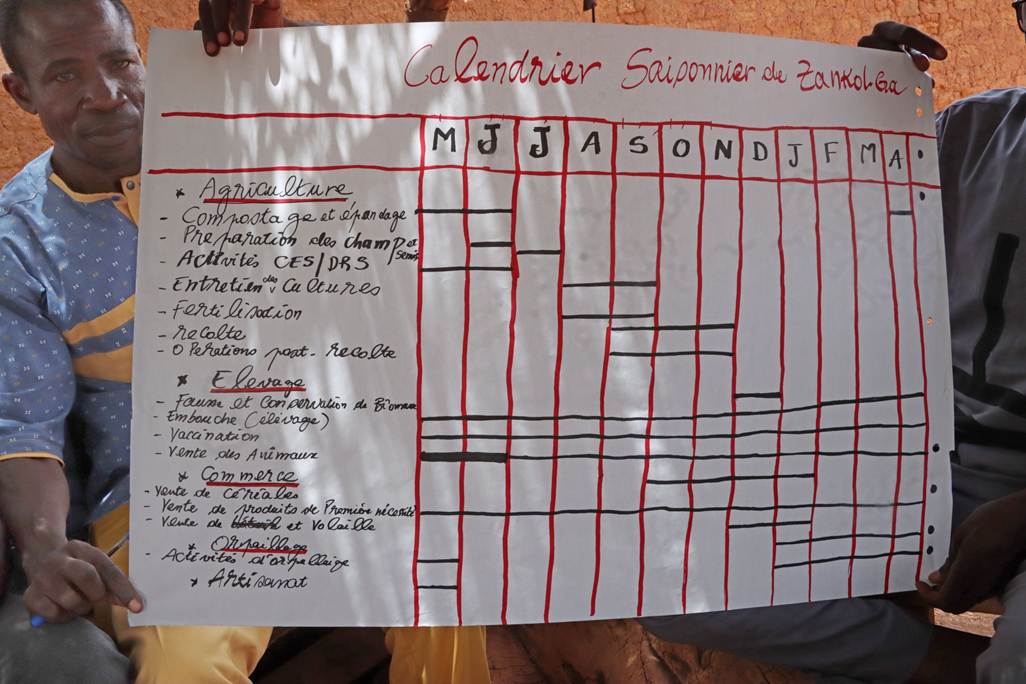 Calendrier Saiponnier de Zankol-Ga
M J J A S O N D J F M A
* Agriculture
- Compostage et épandage
- Preparation des champ et semis
- Activités CES/DRS
- Entretien des Cultures
- Fertilisation
- recolte
- Operations post-recolte
* Elevage
- Faune et Conservation de Biomasse
- Embouche (élévage)
- Vaccination
- Vente des Animaux
* Commerce
- Vente de Céréales
- Vente de produits de Première nécessité
- Vente de et Volaille
* Orpaillage
- Activités d'orpaillage
* Artisanat